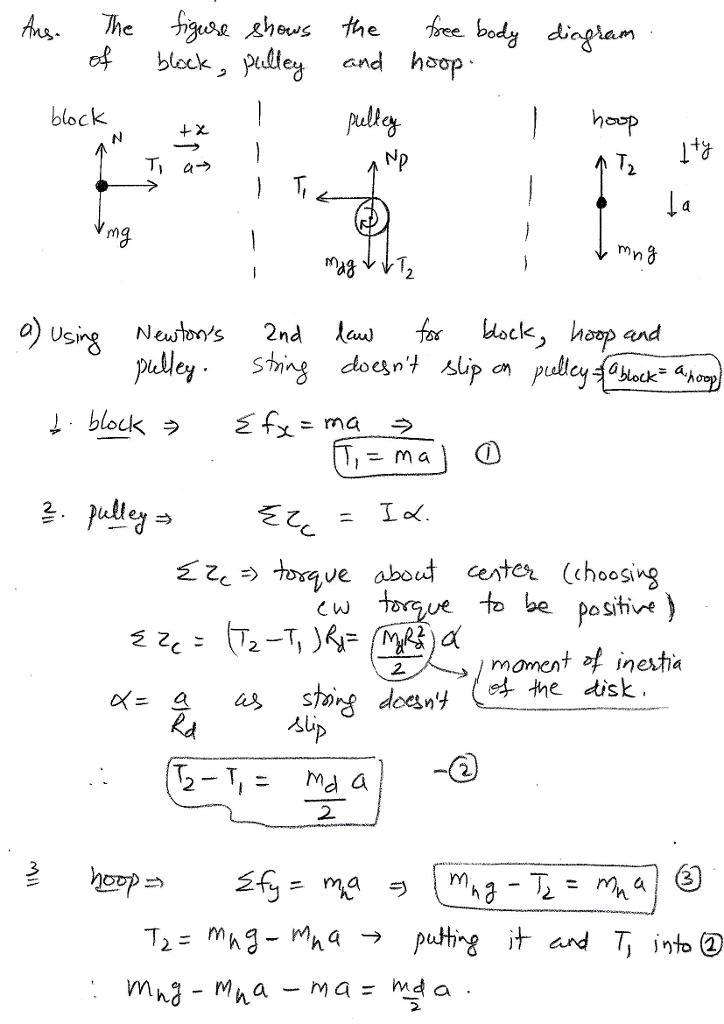 Ans. The figure shows the free body diagram.
of block, pulley and hoop.
block
N
+x
T₁ a→
mg
pulley
Np
T₁
m_dg T₂
hoop
T₂
↓+y
↓a
m_hg
a) Using Newton's 2nd law for block, hoop and
pulley. string doesn't slip on pulley ⇒ a_block = a_hoop
1. block ⇒ Σfx = ma ⇒
T₁ = ma ①
2. pulley ⇒ Στ_c = Iα.
Στ_c ⇒ torque about center (choosing
cw torque to be positive)
Στ_c = (T₂ - T₁) R_d = M_dR_d²/2 α
moment of inertia
of the disk.
α = a/R_d as string doesn't
slip
∴ T₂ - T₁ = m_d/2 a -②
3 hoop ⇒ Σfy = m_ha ⇒ m_hg - T₂ = m_ha ③
T₂ = m_hg - m_ha → putting it and T₁ into ②
∴ m_hg - m_ha - ma = m_d/2 a.